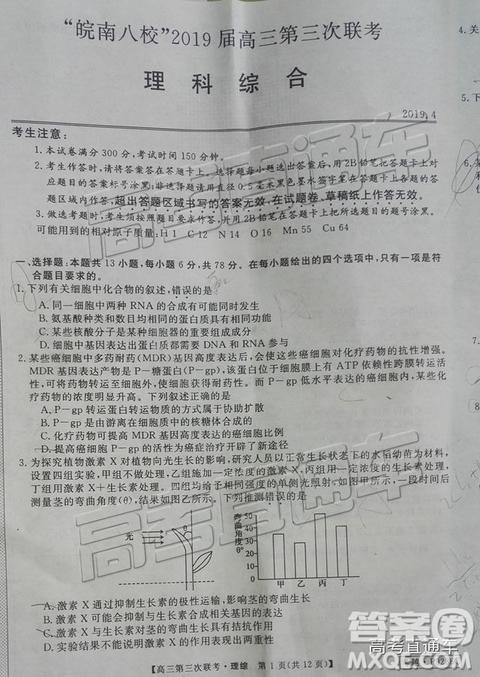 “皖南八校”2019届高三第三次联考
理科综合
2019.4
考生注意:
1.本试卷满分300分,考试时间150分钟。
2.考生作答时,请将答案答在答题卡上。选择题每小题选出答案后,用2B铅笔把答题卡上对
应题目的答案标号涂黑;非选择题请用直径0.5毫米黑色墨水签字笔在答题卡上各题的答
题区域内作答,超出答题区域书写的答案无效,在试题卷、草稿纸上作答无效。
3.做选考题时,考生须按照题目要求作答,并用2B铅笔在答题卡上把所选题目的题号涂黑。
可能用到的相对原子质量:H 1 C 12 N 14 O 16 Mn 55 Cu 64
一、选择题:本题共13小题,每小题6分,共78分。在每小题给出的四个选项中,只有一项是符
合题目要求的。
1.下列有关细胞中化合物的叙述,错误的是
A.同一细胞中两种RNA的合成有可能同时发生
B.氨基酸种类和数目均相同的蛋白质可能是不同蛋白质
C.某些核酸分子是某种细胞器的重要组成部分
D.细胞中大分子出入细胞都需要DNA与RNA
2.某些癌细胞中多药耐药(MDR)基因高度表达后,会使这些癌细胞对化疗药物的抗性增强。
MDR基因表达产物是P-糖蛋白(P-gp),该蛋白位于细胞膜上有ATP依赖性跨膜转运活
性,可将化疗药物转运至细胞外,使细胞获得耐药性。而P-gp低水平表达的癌细胞内,某些
药物的浓度明显升高。下列叙述正确的是
A.P-gp转运蛋白转运物质的方式属于协助扩散
B.P-gp是由游离在细胞质中的核糖体合成的
C.化疗药物可提高MDR基因高度表达的癌细胞比例
D.提高P-gp的合成或抑制其活性可为癌症治疗开辟了新途径
3.为探究植物激素X对植物向光生长的影响,研究人员以正常生长状态下的水稻幼苗为材料,
设置四组实验,甲组不做处理,乙组施加一定浓度的激素X,丙组用一定浓度的生长素处理,
丁组用激素X+生长素处理。四组均给予相同强度的单侧光照射如图甲所示,一段时间后
测量茎的弯曲角度(θ),结果如图乙所示。下列推测错误的是
光
弯曲角度
50
40
30
20
10
甲 乙 丙 丁
A.激素X通过抑制生长素的极性运输,影响茎的弯曲
B.激素X可能会抑制与生长素合成相关基因的表达
C.生长素与激素X对茎的弯曲生长具有协同作用
【高三第三次联考·理综 第1页(共12页)】
高考直通车
高考直通车
高考直通车
答案圈
MXQE.COM